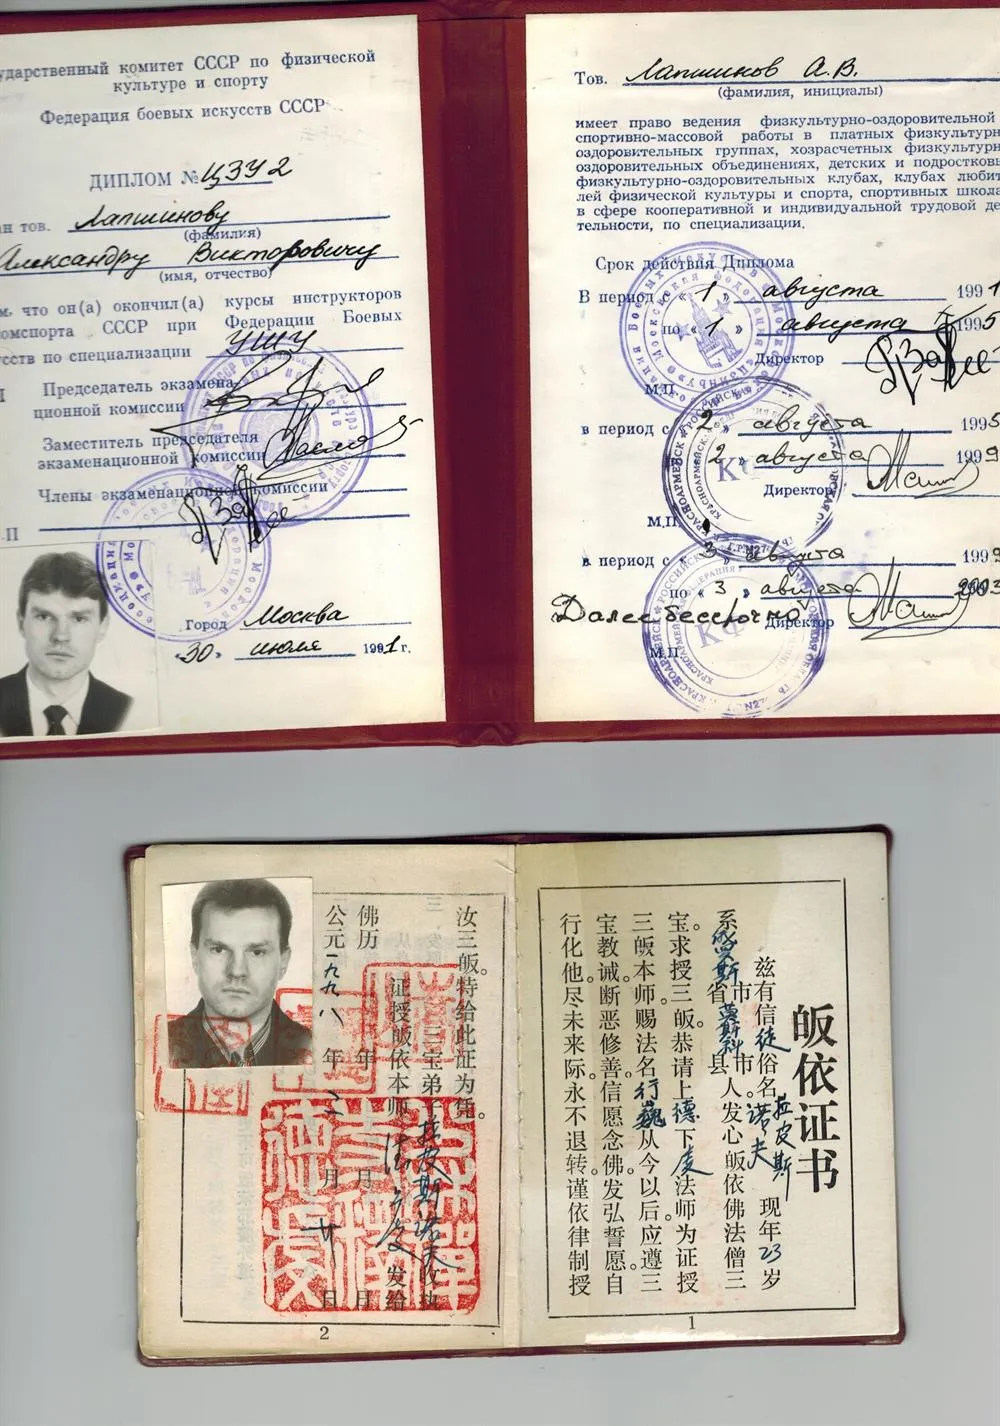 ударственный комитет СССР по физической
культуре и спорту
Федерация боевых искусств СССР
ДИПЛОМ №ЦЗУ2
ан тов. Лапшинову
(фамилия)
Александру Викторовичу
(имя, отчество)
м, что он(а) окончил(а) курсы инструкторов
омспорта СССР при Федерации Боевых
усств по специализации УШУ
Председатель экзамена-
ционной комиссии
Заместитель председателя
экзаменационной комиссии
Члены экзаменационной комиссии
П
Город Москва
«30» июля 1991 г.
Тов. Лапшинов А.В.
(фамилия, инициалы)
имеет право ведения физкультурно-оздоровительной
спортивно-массовой работы в платных физкультурн
оздоровительных группах, хозрасчетных физкультурн
оздоровительных объединениях, детских и подростковы
физкультурно-оздоровительных клубах, клубах любит
лей физической культуры и спорта, спортивных школа
в сфере кооперативной и индивидуальной трудовой де
тельности, по специализации.
Срок действия Диплома
В период с «1» августа 1991
по «1» августа 1995
Директор
М.П.
в период с «2» августа 1995
«2» августа 1999
Директор
М.П.
в период с «3» августа 1999
по «3» августа 2003
Далее бессрочно Директор
М.П.
皈依证书
兹有信徒俗名拉皮斯诺夫 现年23岁
系俄罗斯省市莫斯科县市人发心皈依佛法僧三
宝。求授三皈。恭请上德下虔法师为证授
三皈本师。赐法名行巍从今以后应遵三
宝教诫。断恶修善信愿念佛。发弘誓愿。自
行化他。尽未来际。永不退转。谨依律制授
1
汝三皈。特给此证为凭。
三宝弟子拉皮斯诺夫收执
证授皈依本师 发给
佛历 年 月 日
公元一九九八年三月廿日
2